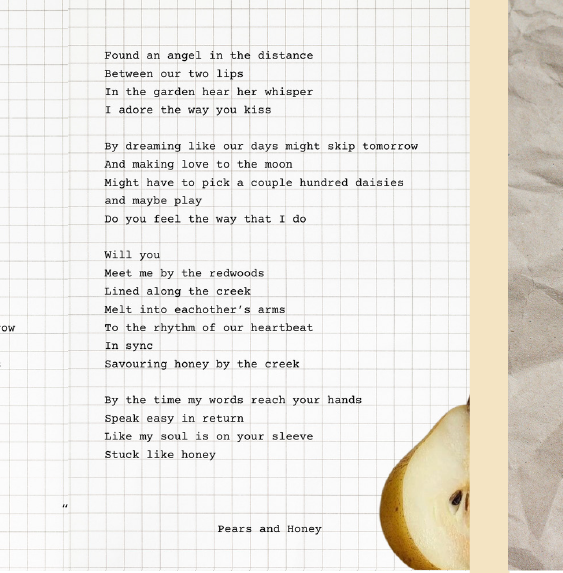 Found an angel in the distance
Between our two lips
In the garden hear her whisper
I adore the way you kiss
By dreaming like our days might skip tomorrow
And making love to the moon
Might have to pick a couple hundred daisies
and maybe play
Do you feel the way that I do
Will you
Meet me by the redwoods
Lined along the creek
Melt into eachother’s arms
To the rhythm of our heartbeat
In sync
Savouring honey by the creek
By the time my words reach your hands
Speak easy in return
Like my soul is on your sleeve
Stuck like honey
“
Pears and Honey